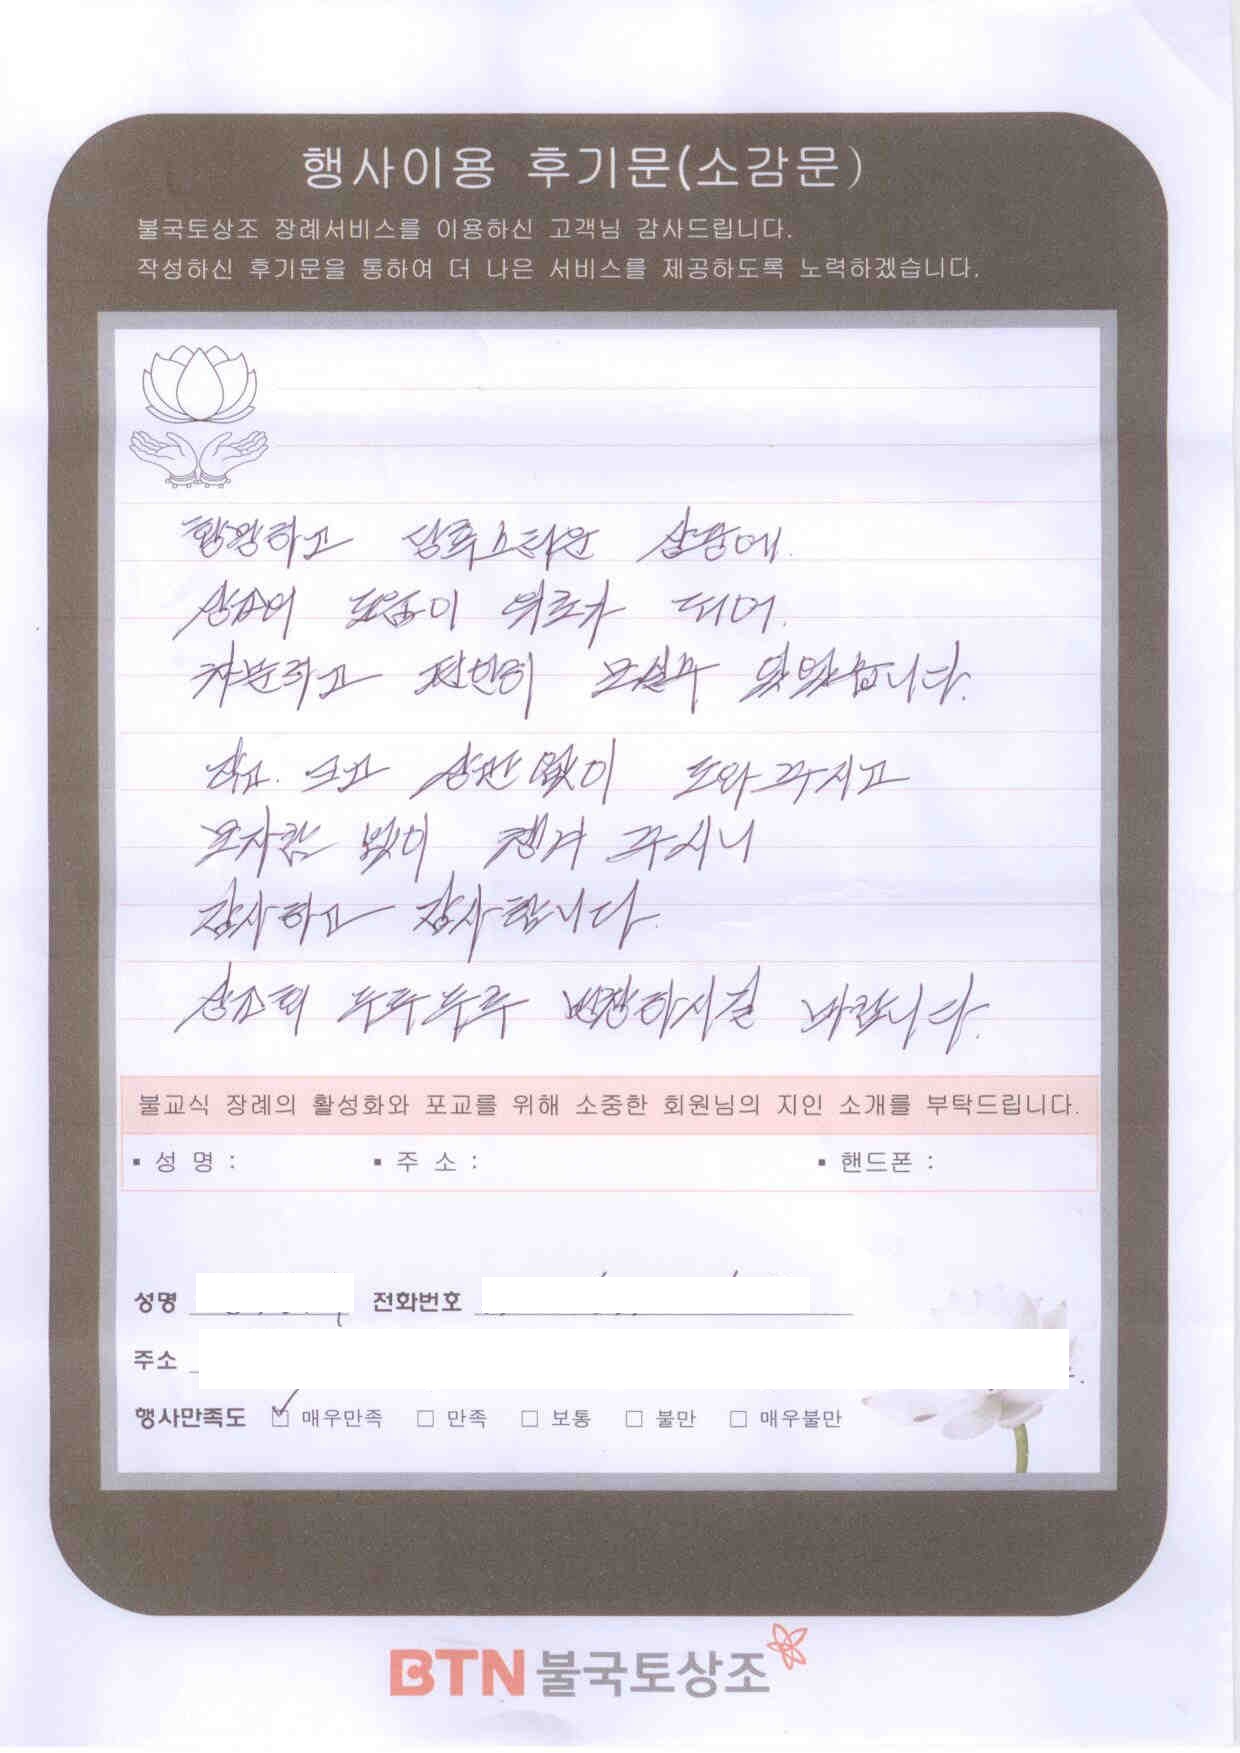 행사이용 후기문(소감문)
불국토상조 장례서비스를 이용하신 고객님 감사드립니다.
작성하신 후기문을 통하여 더 나은 서비스를 제공하도록 노력하겠습니다.
황망하고 당혹스러운 상황에.
상조의 도움이 위로가 되며.
차분하고 편안히 모실수 있었습니다.
작고. 크고 상관 없이 도와주시고
모자람 없이 챙겨 주시니
감사하고 감사합니다.
상조회 두루두루 번창하시길 바랍니다.
불교식 장례의 활성화와 포교를 위해 소중한 회원님의 지인 소개를 부탁드립니다.
▪ 성 명 : ▪ 주 소 : ▪ 핸드폰 :
성명 전화번호
주소
행사만족도 ☑ 매우만족 □ 만족 □ 보통 □ 불만 □ 매우불만
BTN 불국토상조